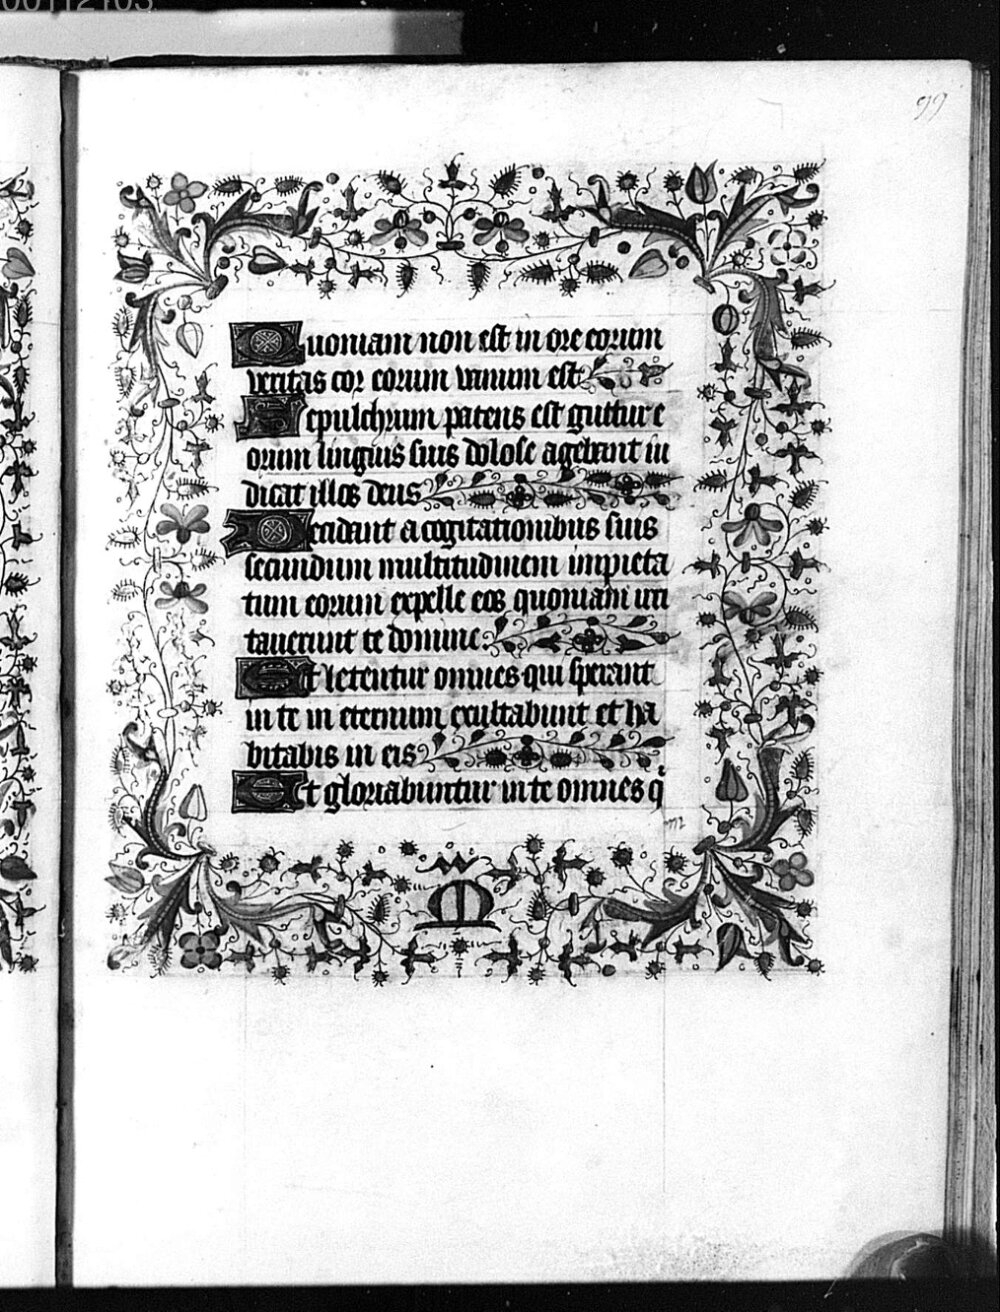 00112103
99
Quoniam non est in ore eorum
veritas cor eorum vanum est
Sepulchrum patens est guttur e
orum linguis suis dolose agebant iu
dicat illos deus
Decidant a cogitationibus suis
secundum multitudinem impieta
tum eorum expelle eos quoniam irri
tauerunt te domine.
Et letentur omnes qui sperant
in te in eternum exultabunt et ha
bitabis in eis
Et gloriabuntur in te omnes q
M